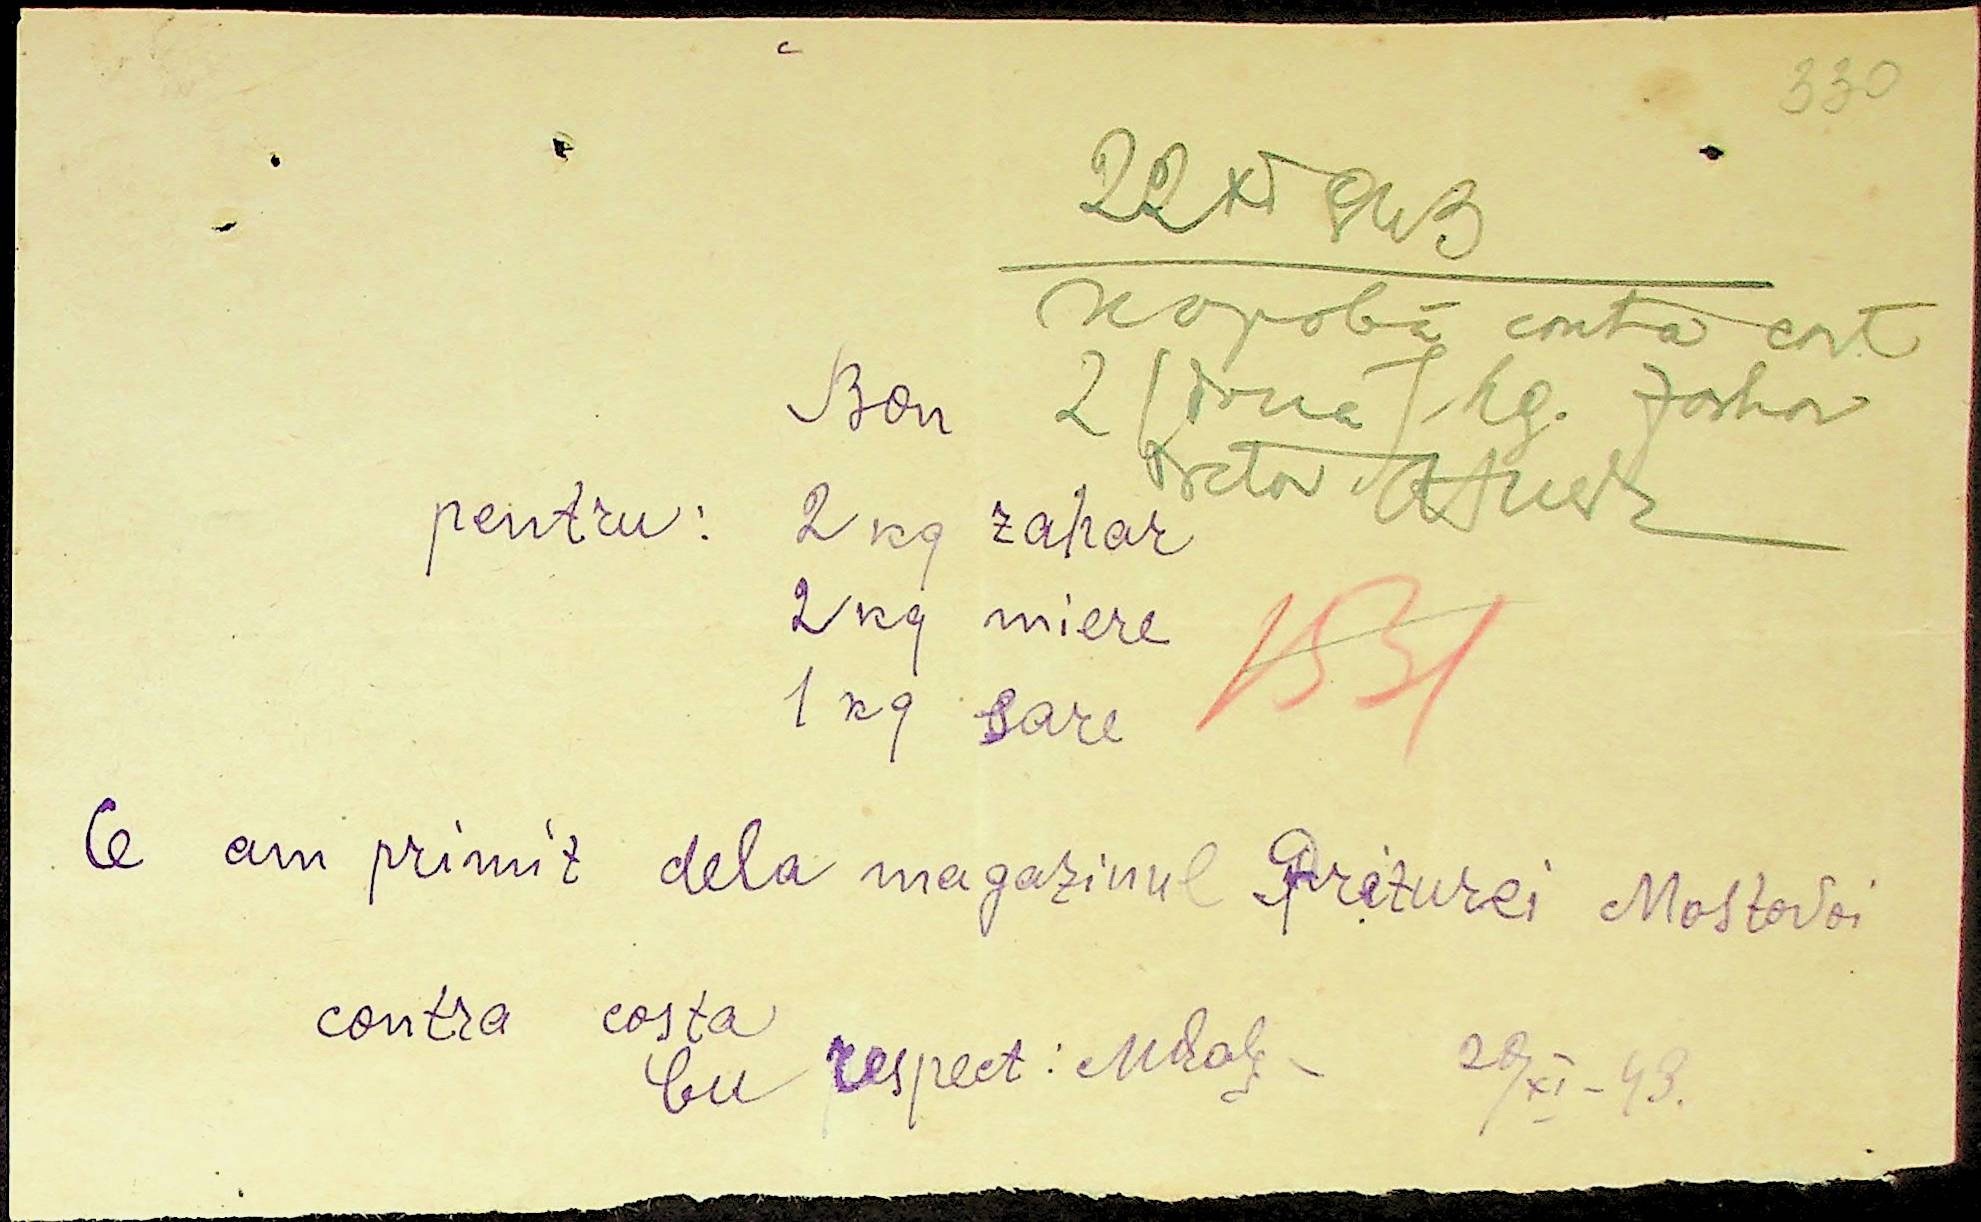 330
22 XI 943
contra cost
Bon
2 (două) kg. zahar
pentru: 2 kg zahar
2 kg miere
1 kg sare
Ce am primit dela magazinul Preturei Mostovoi
contra costa
Cu respect:
XI - 43.